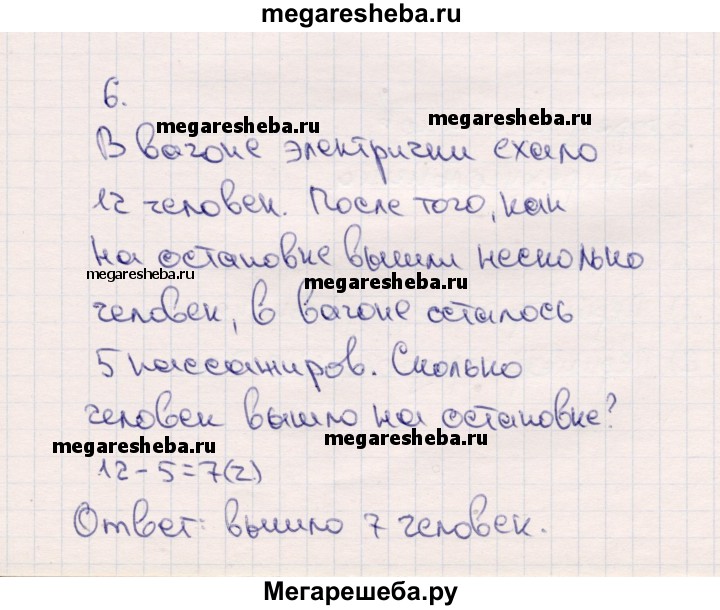 megaresheba.ru
6.
megaresheba.ru
megaresheba.ru
В вагоне электрички ехало
12 человек. После того, как
на остановке вышли несколько
megaresheba.ru
megaresheba.ru
человек, в вагоне осталось
5 пассажиров. Сколько
человек вышло на остановке?
megaresheba.ru
megaresheba.ru
12-5=7(г)
Ответ: вышло 7 человек.
Мегарешеба.ру